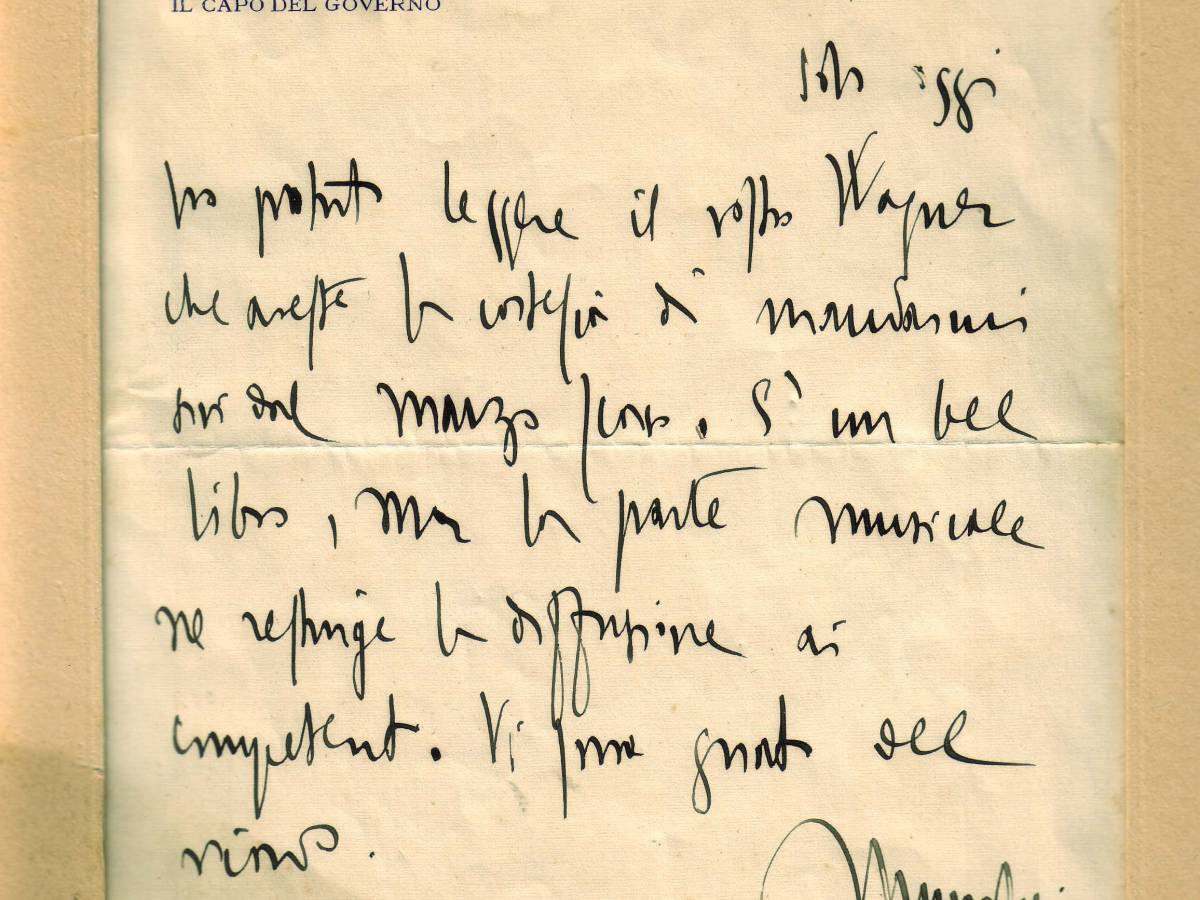 IL CAPO DEL GOVERNO
Solo oggi
ho potuto leggere il vostro Wagner
che aveste la cortesia di mandarmi
sin dal marzo scorso. È un bel
libro, ma la parte musicale
ne restringe la diffusione ai
competenti. Vi sono grato del
Mussolini